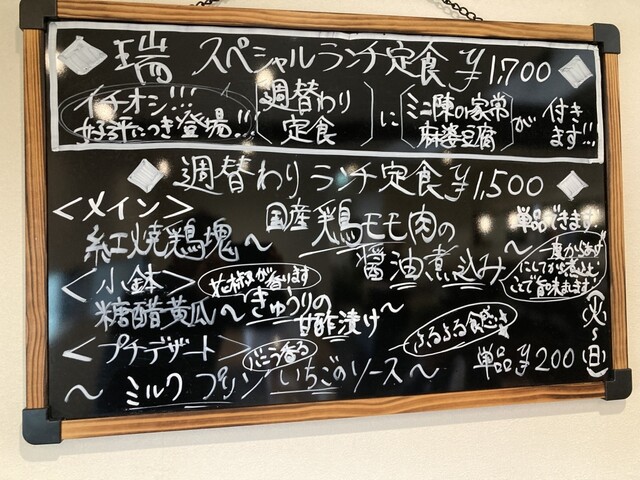 瑞 スペシャルランチ定食 ¥1,700
イチオシ!!!
好評につき登場!!
週替わり
定食
に
ミニ陳の家常
麻婆豆腐
が 付き
ます!!!
週替わりランチ定食 ¥1,500
<メイン>
紅焼鶏塊～
国産鶏モモ肉の
醤油煮込み～
単品できます
一度からあげ
にしてから煮こむ
ことで旨味ます
<小鉢>
花椒が香ります
糖醋黄瓜～きゅうりの
甘酢漬け～
<プチデザート>
バニラ香る
ふるふる食感
～ミルクプリンいちごのソース～
単品¥200
(火～日)